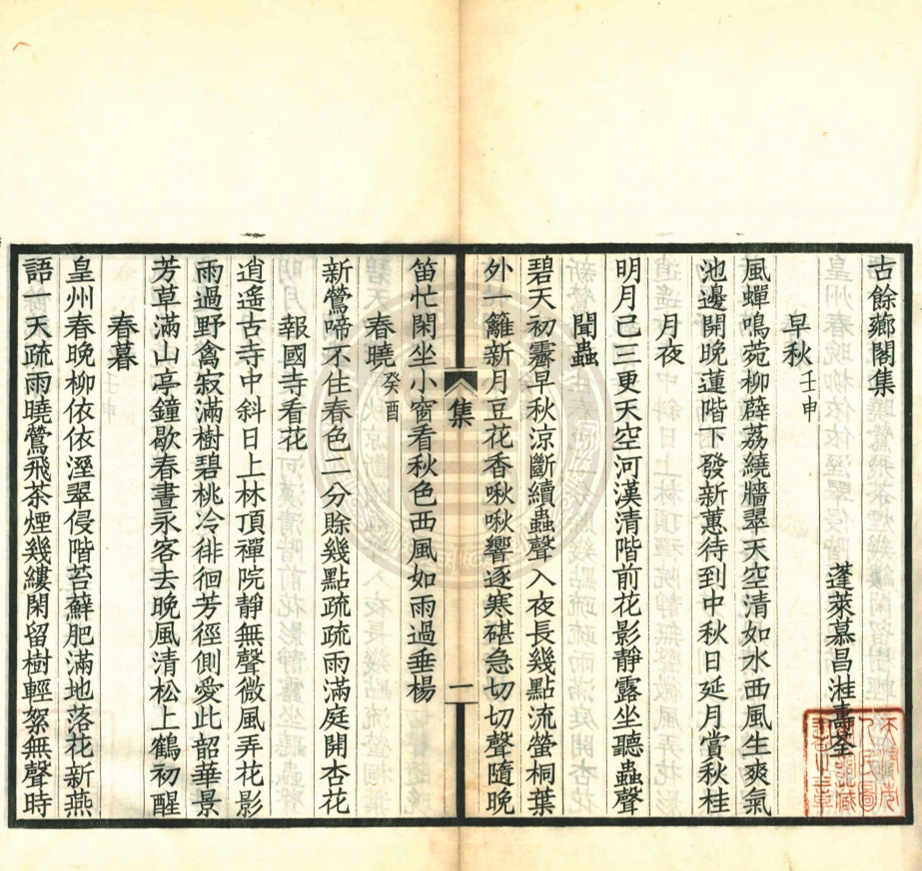 古餘薌閣集
蓬萊慕昌溎壽荃
早秋 壬申
風蟬鳴菀柳薜荔繞牆翠天空清如水西風生爽氣
池邊開晚蓮階下發新蕙待到中秋日延月賞秋桂
月夜
明月已三更天空河漢清階前花影靜露坐聽蟲聲
聞蟲
碧天初霽早秋涼斷續蟲聲入夜長幾點流螢桐葉
外一籬新月豆花香啾啾響逐寒碪急切切聲隨晚
集
一
笛忙閑坐小窗看秋色西風如雨過垂楊
春曉 癸酉
新鶯啼不住春色二分賒幾點疏疏雨滿庭開杏花
報國寺看花
逍遙古寺中斜日上林頂禪院靜無聲微風弄花影
雨過野禽寂滿樹碧桃冷徘徊芳徑側愛此韶華景
芳草滿山亭鐘歇春晝永客去晚風清松上鶴初醒
春暮
皇州春晚柳依依溼翠侵階苔蘚肥滿地落花新燕
語一天疏雨曉鶯飛茶煙幾縷閑留樹輕絮無聲時